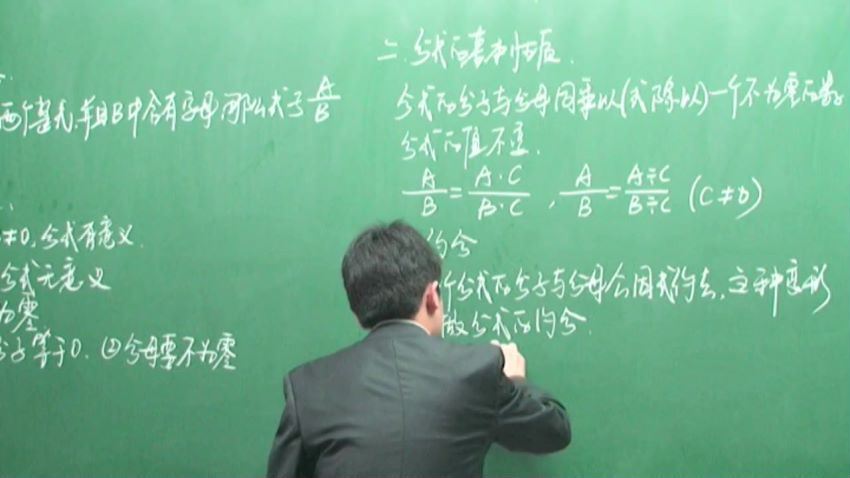 两个整式,并且B中含有字母,那么式子 A/B
≠0,分式有意义.
分式无意义
为零
分子等于0. ②分母要不为零
二、分式的基本性质.
分式的分子与分母同乘以(或除以)一个不为零的数
分式的值不变.
A/B = A·C/B·C , A/B = A÷C/B÷C (C≠0)
约分
个分式的分子与分母公因式约去,这种变形
做分式的约分.